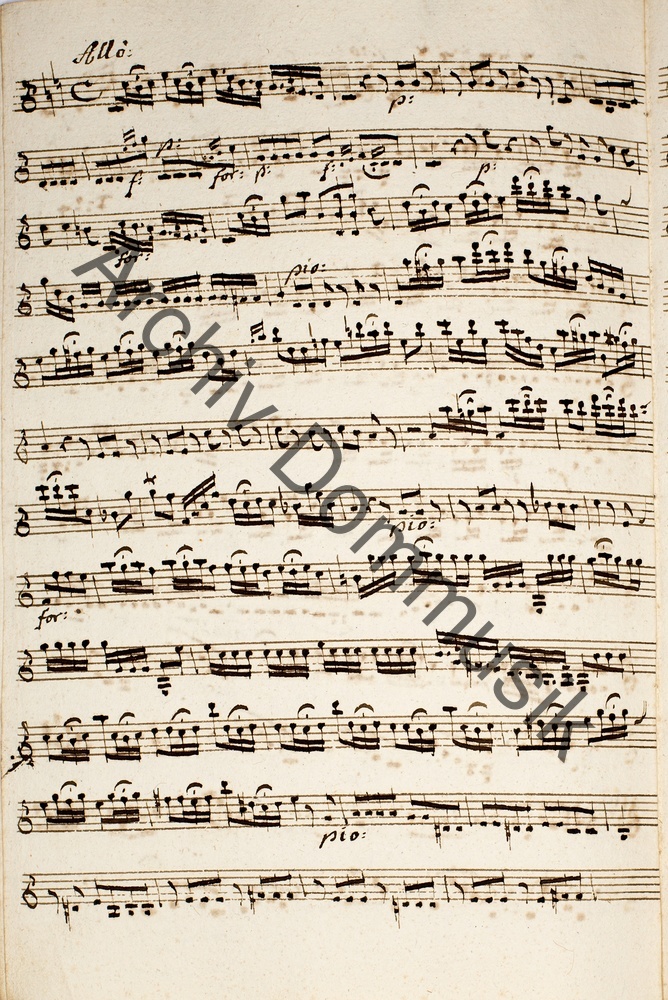 Allo:
p:
p:
f: for: p: f: p:
for:
pio:
pio:
for:
pio:
Archiv Dommusik